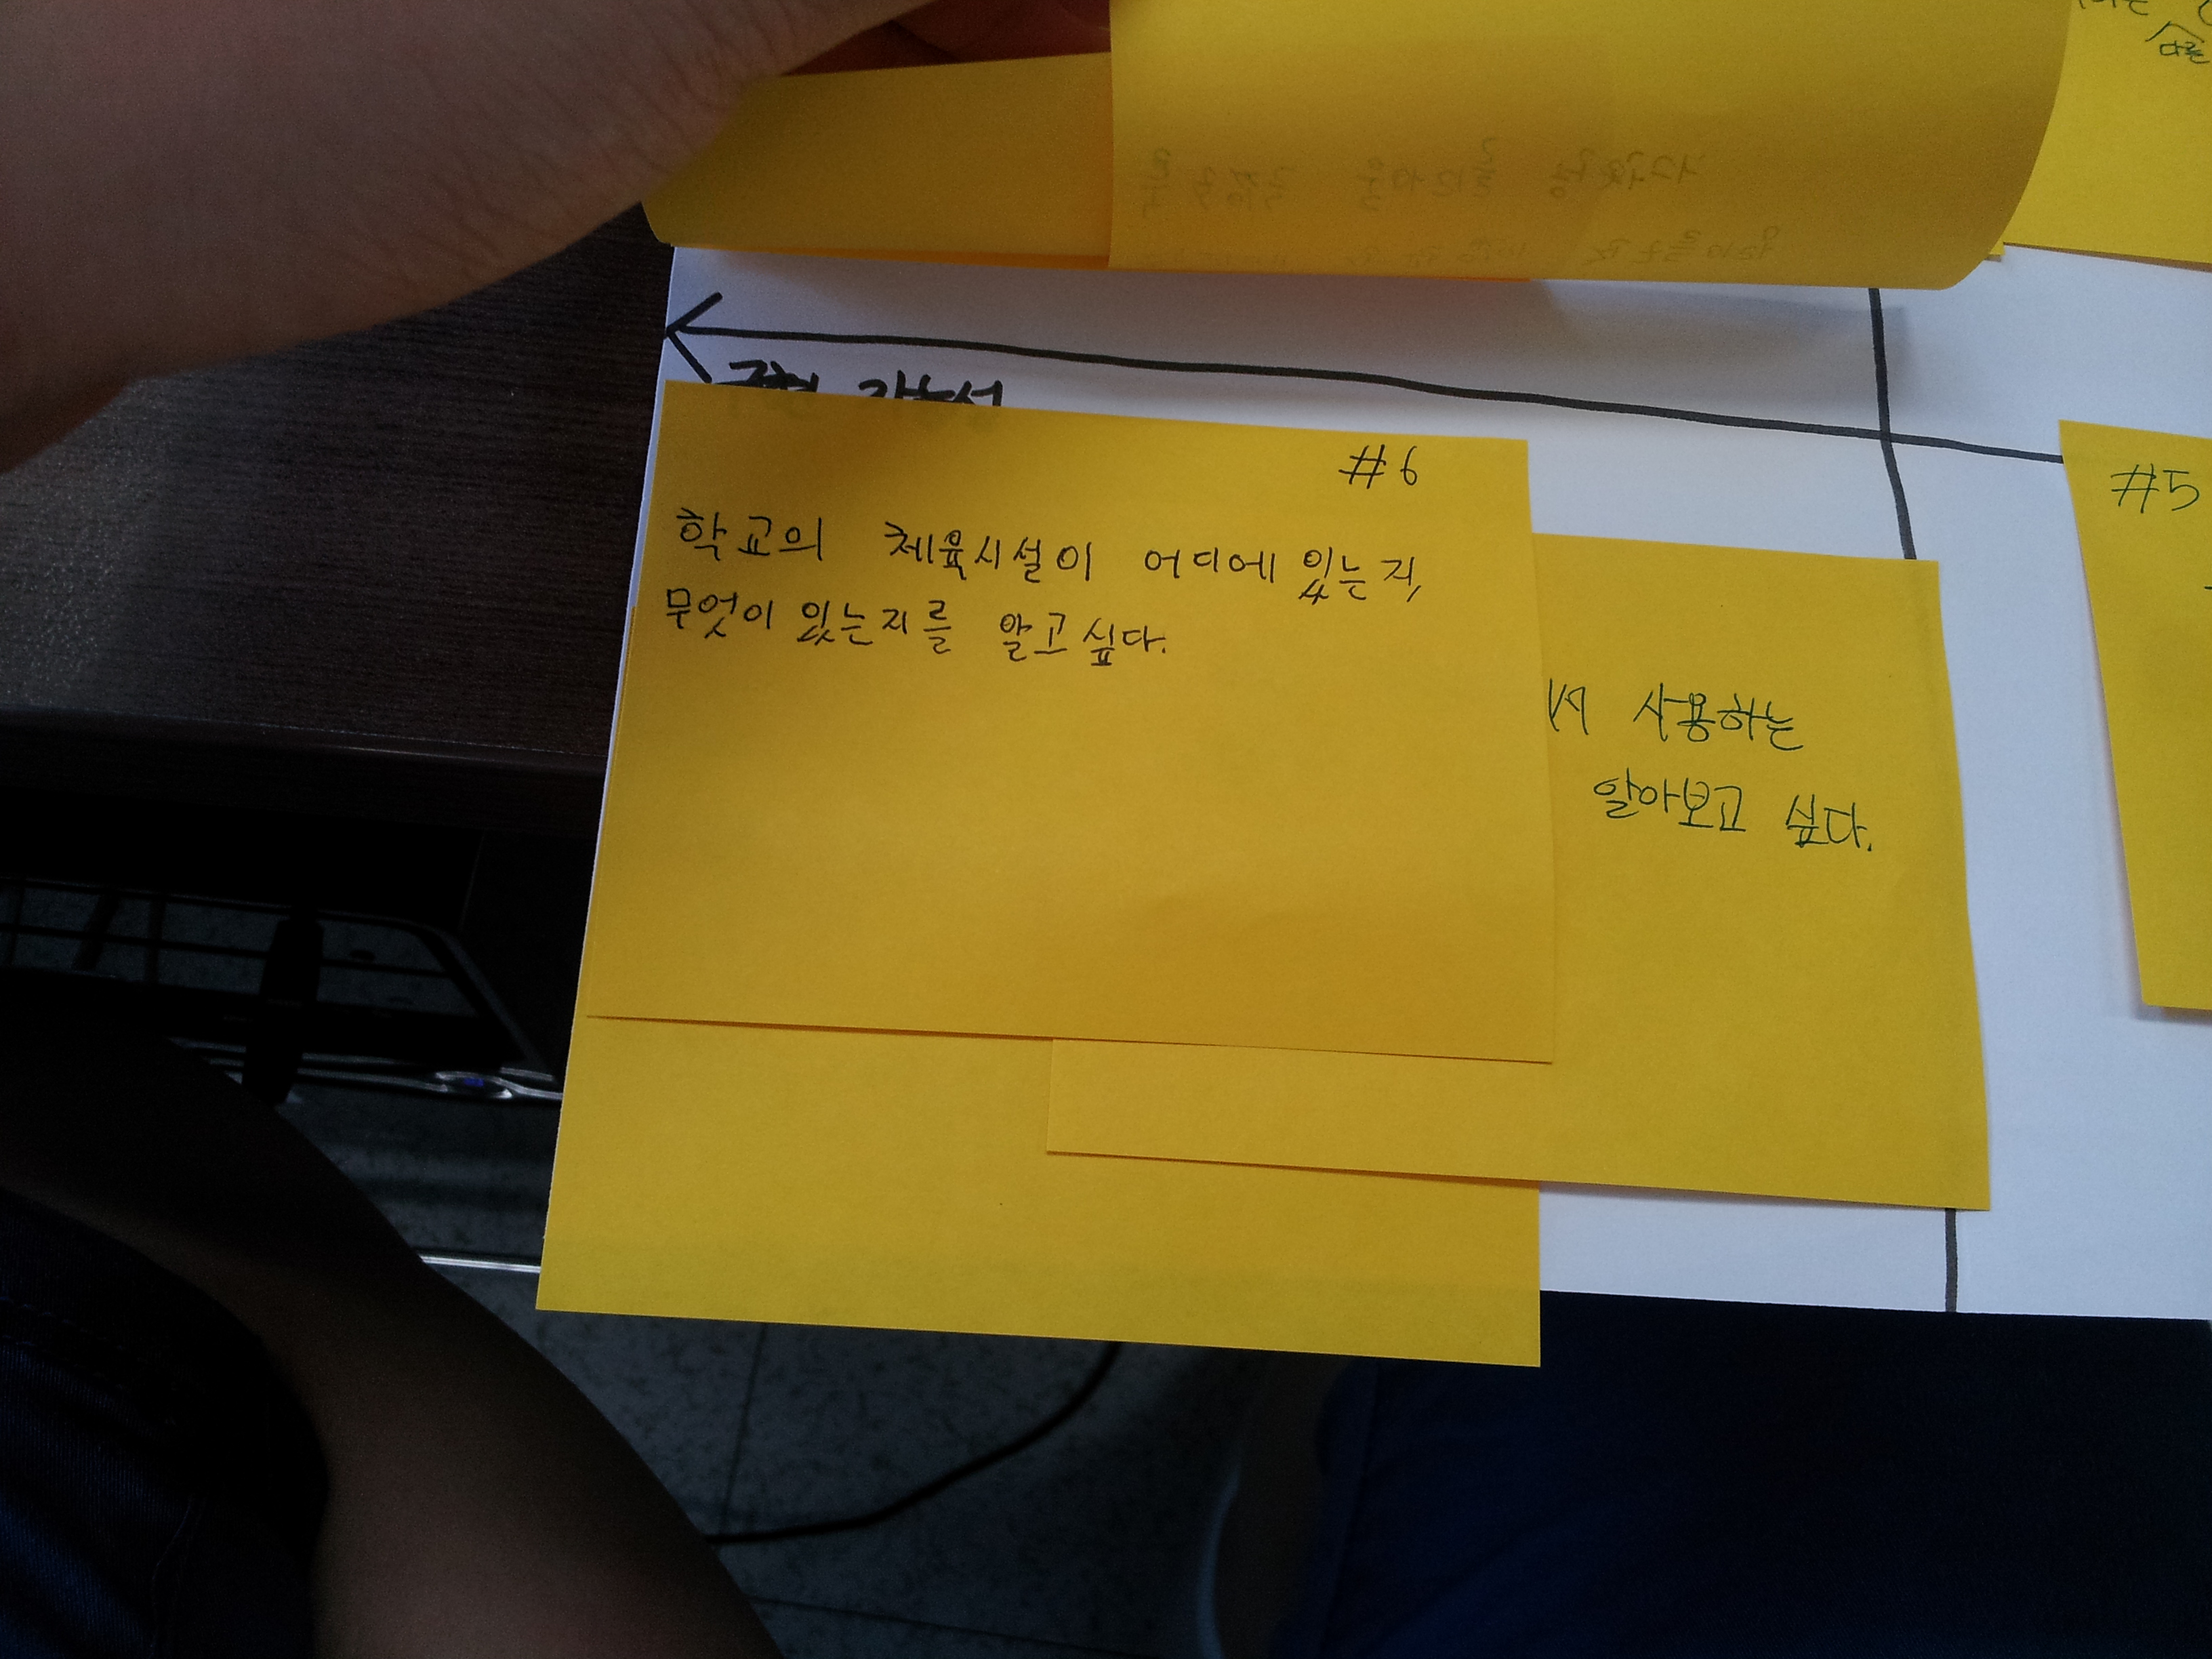 구현 가능성
#6
학교의 체육시설이 어디에 있는지,
무엇이 있는지를 알고싶다.
서 사용하는
알아보고 싶다.
#5